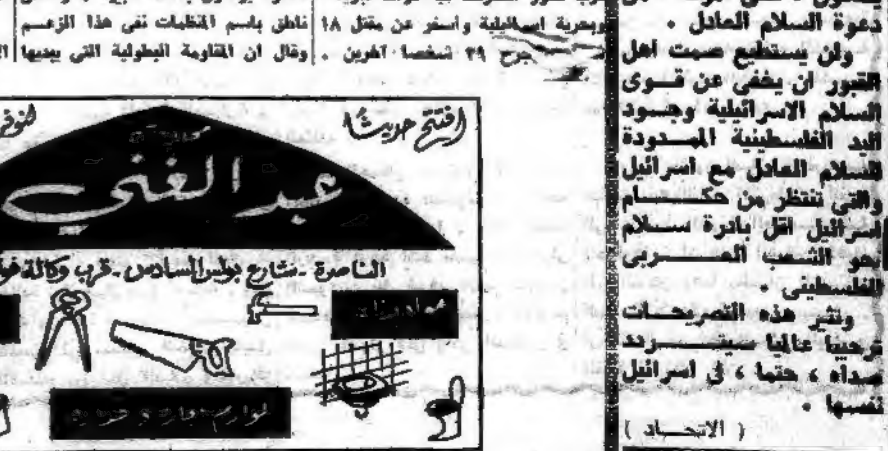 دعوة السلام العادل .
ولن يستطيع صمت اهل
القبور ان يخفى عن قوى
السلام الاسرائيلية وجود
اليد الفلسطينية الممدودة
للسلام العادل مع اسرائيل
والتي تنتظر من حكام
اسرائيل اقل بادرة سلام
نحو الشعب العربى
الفلسطينى .
وتثير هذه التصريحات
ترحيبا عاليا سيتردد
صداه ، حتما ، فى اسرائيل
نفسها .
( الاتحاد )
وبحرية اسرائيلية واسفر عن مقتل ١٨
جرح ٣٩ شخصا آخرين .
ناطق باسم المنظمات نفى هذا الزعم
وقال ان المقاومة البطولية التي
افتتح حديثا
عبد الغني
الناصرة - شارع بولس السادس - قرب وكالة
مواد بناء
لوازم نجارة و